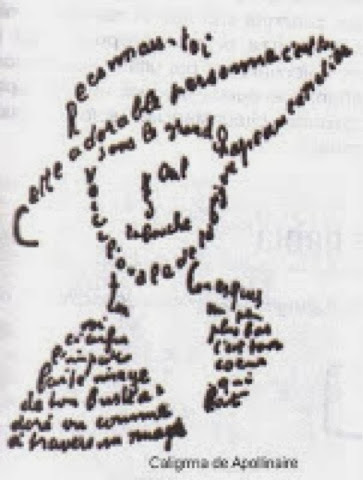 Reconnais-toi
Cette adorable personne c'est toi
sous le grand chapeau canotier
Oeil
la bouche
Voici l'ovale de ta figure
ton
cou exquis
Voi
ci enfin
l'impar
faite image
de ton buste a
doré vu comme
à travers un nuage
un peu
plus bas
c'est ton
coeur
qui
bat
Caligrma de Apollinaire